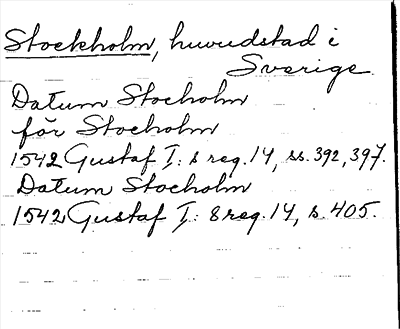 Stockholm, huvudstad i
Sverige.
Datum Stocholm
för Stocholm
1542 Gustaf I: s reg. 14, ss. 392, 397.
Datum Stocholm
1542 Gustaf I: s reg. 14, s. 405.